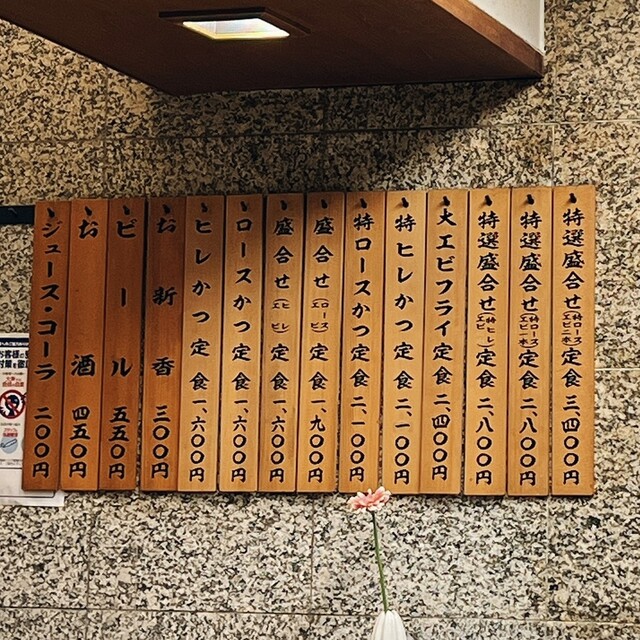 特選盛合せ 特ロース エビ二本 定食 三、四〇〇円
特選盛合せ 特ロース エビ一本 定食 二、八〇〇円
特選盛合せ 特ヒレ エビ 定食 二、八〇〇円
大エビフライ定食 二、四〇〇円
特ヒレかつ定食 二、一〇〇円
特ロースかつ定食 二、一〇〇円
盛合せ エビ ロース 定食 一、九〇〇円
盛合せ エビ ヒレ 定食 一、六〇〇円
ロースかつ定食 一、六〇〇円
ヒレかつ定食 一、六〇〇円
お新香 三〇〇円
ビール 五五〇円
お酒 四五〇円
ジュース・コーラ 二〇〇円